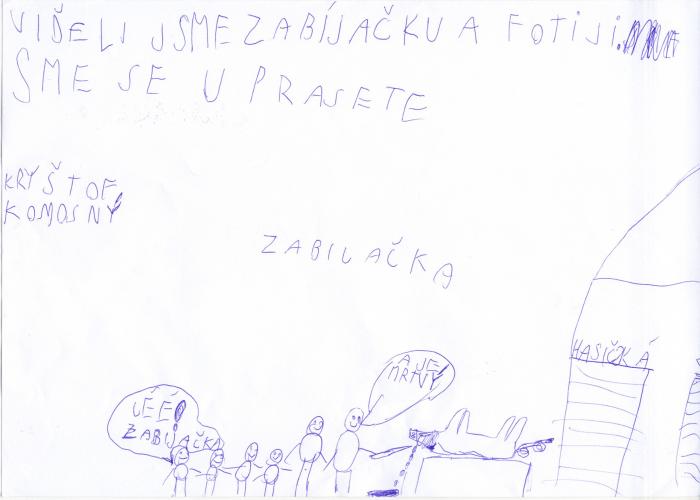 VIĎELI JSME ZABÍJAČKU A FOTILI
SME SE U PRASETE
KRYŠTOF
KOMOSNÝ
ZABILAČKA
HASIČKÁ
A JE
MRTVÝ
JÉÉ!
ZABIJAČKA